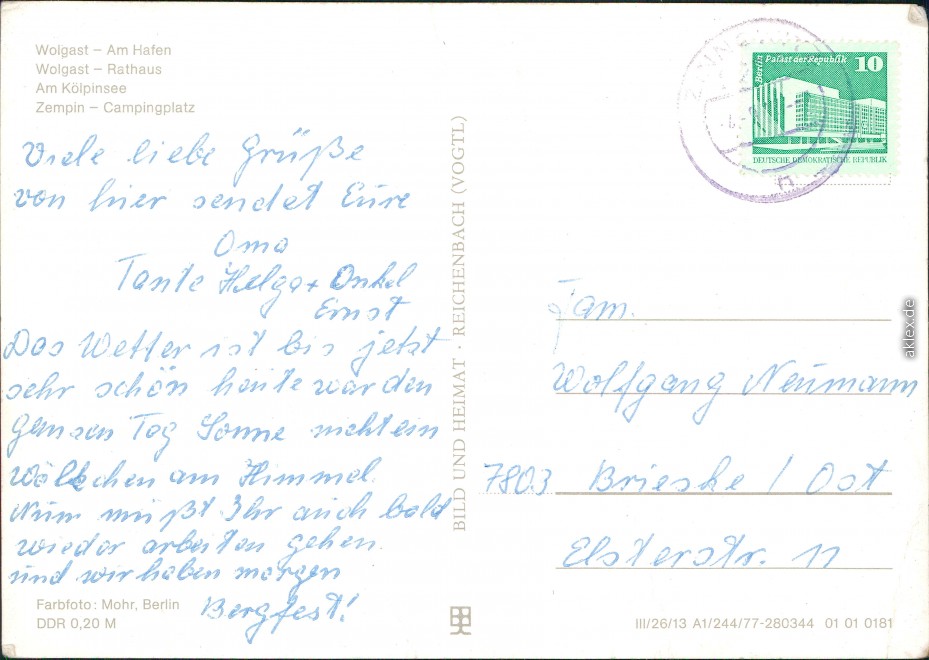 Wolgast – Am Hafen
Wolgast – Rathaus
Am Kölpinsee
Zempin – Campingplatz
Viele liebe Grüße
von hier sendet Eure
Oma
Tante Helga + Onkel
Ernst
Das Wetter ist bis jetzt
sehr schön heute war den
ganzen Tag Sonne nicht ein
Wölkchen am Himmel.
Nun müßt Ihr auch bald
wieder arbeiten gehen.
und wir haben morgen
Bergfest!
Farbfoto: Mohr, Berlin
DDR 0,20 M
BILD UND HEIMAT · REICHENBACH (VOGTL)
Berlin
Palast der Republik
10
DEUTSCHE DEMOKRATISCHE REPUBLIK
Fam.
Wolfgang Neumann
7803 Brieske / Ost
Elsterstr. 11
III/26/13 A1/244/77-280344 01 01 0181
aklex.de